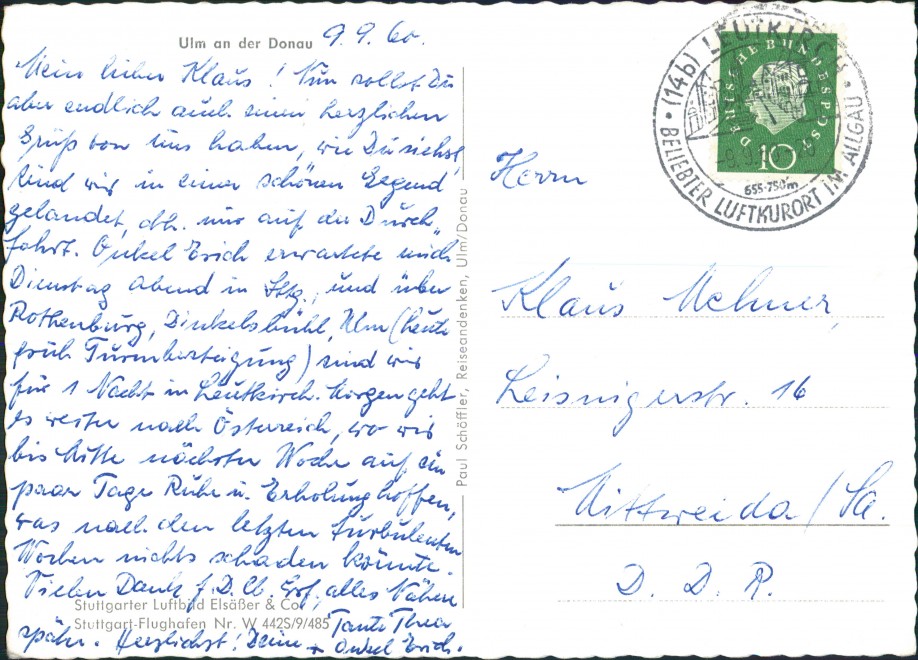 Ulm an der Donau 9. 9. 60.
Mein lieber Klaus! Nun sollst Du
aber endlich auch einen herzlichen
Gruß von uns haben, wie Du siehst,
sind wir in einer schönen Gegend
gelandet, dh. nur auf der Durch-
fahrt. Onkel Erich erwartete mich
Dienstag Abend in Stg., und über
Rothenburg, Dinkelsbühl, Ulm (heute
früh Turmbesteigung) sind wir
für 1 Nacht in Leutkirch. Morgen geht
es weiter nach Österreich, wo wir
bis Mitte nächster Woche auf ein
paar Tage Ruhe u. Erholung hoffen,
was nach den letzten turbulenten
Wochen nichts schaden könnte.
Vielen Dank f. D. alles Nähere
später. Herzlichst! Deine Tante Thea
+ Onkel Erich.
Stuttgarter Luftbild Elsäßer & Co.
Stuttgart-Flughafen Nr. W 442S/9/485
Paul Schöffler, Reiseandenken, Ulm/Donau
DEUTSCHE BUNDESPOST
10
(14b) LEUTKIRCH
655-750m
BELIEBTER LUFTKURORT IM ALLGÄU
Herrn
Klaus
Leisnigerstr. 16
Mittweida / Sa.
D. D. R.